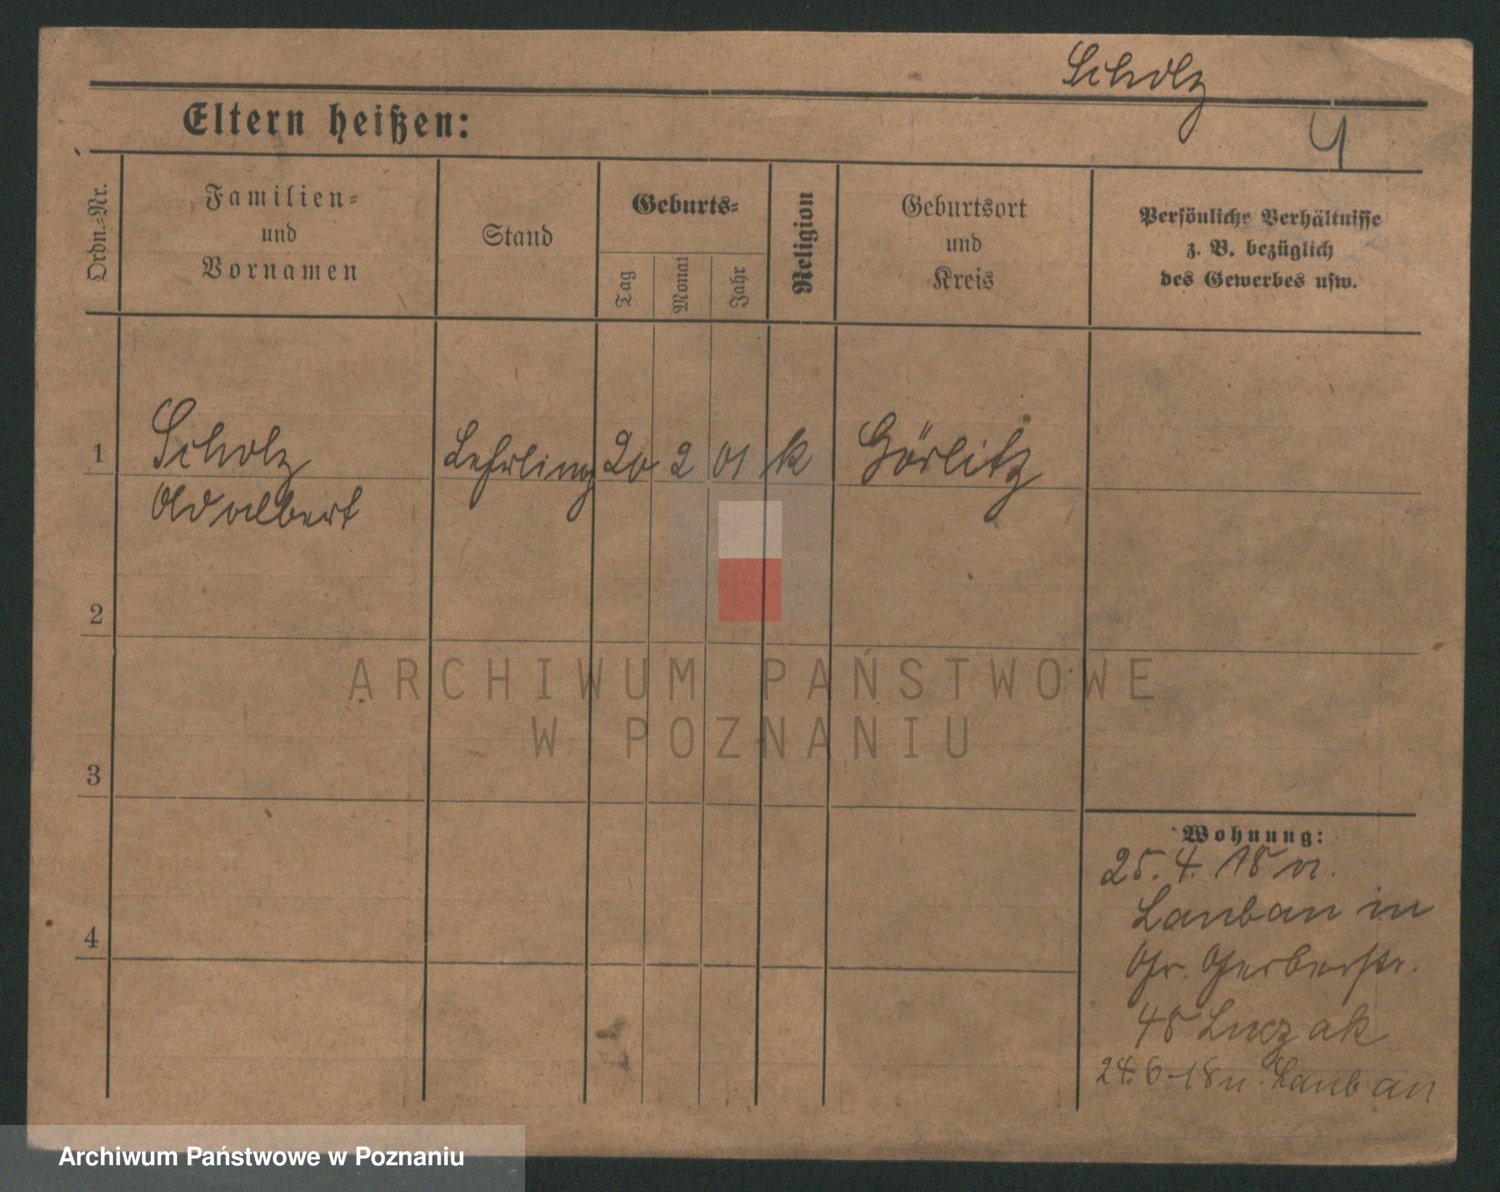 Scholz
4
Eltern heißen:
Ordn.-Nr.
Familien-
und
Vornamen
Stand
Geburts-
Tag
Monat
Jahr
Religion
Geburtsort
und
Kreis
Persönliche Verhältnisse
z. B. bezüglich
des Gewerbes usw.
1 Scholz Lehrling 20 2 01 k Görlitz
Adalbert
2
3
4
Wohnung:
25. 4. 18 v.
Lauban in
Gr. Gerberstr.
48 Luczak
24. 6. 18 n. Lauban
ARCHIWUM PAŃSTWOWE
W POZNANIU
Archiwum Państwowe w Poznaniu